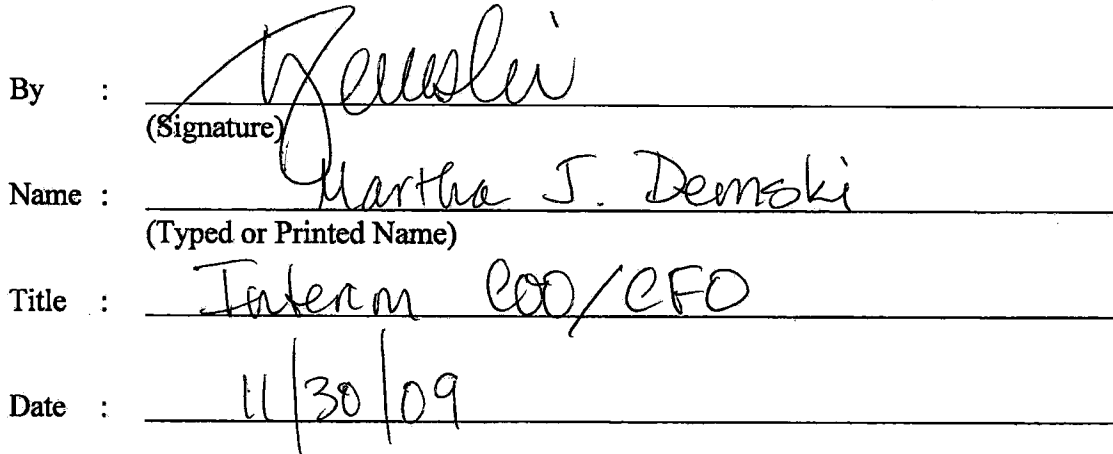 By : Demski
(Signature)
Name : Martha J. Demski
(Typed or Printed Name)
Title : Interim COO/CFO
Date : 11/30/09